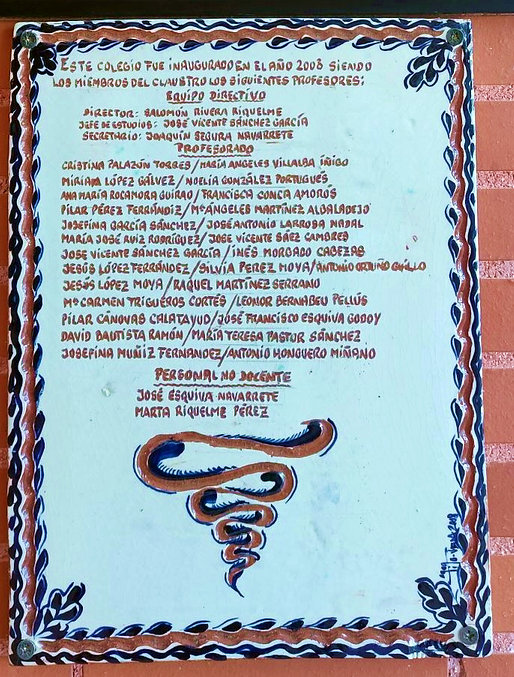 ESTE COLEGIO FUE INAUGURADO EN EL AÑO 2003 SIENDO
LOS MIEMBROS DEL CLAUSTRO LOS SIGUIENTES PROFESORES:
EQUIPO DIRECTIVO
DIRECTOR: SALOMÓN RIVERA RIQUELME
JEFE DE ESTUDIOS: JOSÉ VICENTE SÁNCHEZ GARCÍA
SECRETARIO: JOAQUÍN SEGURA NAVARRETE
PROFESORADO
CRISTINA PALAZÓN TORRES/MARÍA ANGELES VILLALBA IÑIGO
MIRIAM LÓPEZ GÁLVEZ/NOELIA GONZÁLEZ PORTUGUÉS
ANA MARÍA ROCAMORA GUIRAO/FRANCISCA CONCA AMORÓS
PILAR PÉREZ FERRÁNDIZ/Mª ÁNGELES MARTÍNEZ ALBALADEJO
JOSEFINA GARCÍA SÁNCHEZ/JOSÉ ANTONIO LARROSA NADAL
MARÍA JOSÉ RUIZ RODRÍGUEZ/JOSE VICENTE SÁEZ CAMBRES
JOSE VICENTE SÁNCHEZ GARCÍA/INÉS MORCADO CABEZAS
JESÚS LÓPEZ FERRÁNDEZ/SILVIA PEREZ MOYA/ANTONIO ORTUÑO
JESÚS LÓPEZ MOYA/RAQUEL MARTÍNEZ SERRANO
Mª CARMEN TRIGUÉROS CORTÉS/LEONOR BERNABEU PELLÚS
PILAR CÁNOVAS CALATAYUD/JOSÉ FRANCISCO ESQUIVA GODOY
DAVID BAUTISTA RAMÓN/MARÍA TERESA PASTOR SÁNCHEZ
JOSEFINA MUÑIZ FERNANDEZ/ANTONIO HONGUERO MIÑANO
PERSONAL NO DOCENTE
JOSÉ ESQUIVA NAVARRETE
MARTA RIQUELME PÉREZ